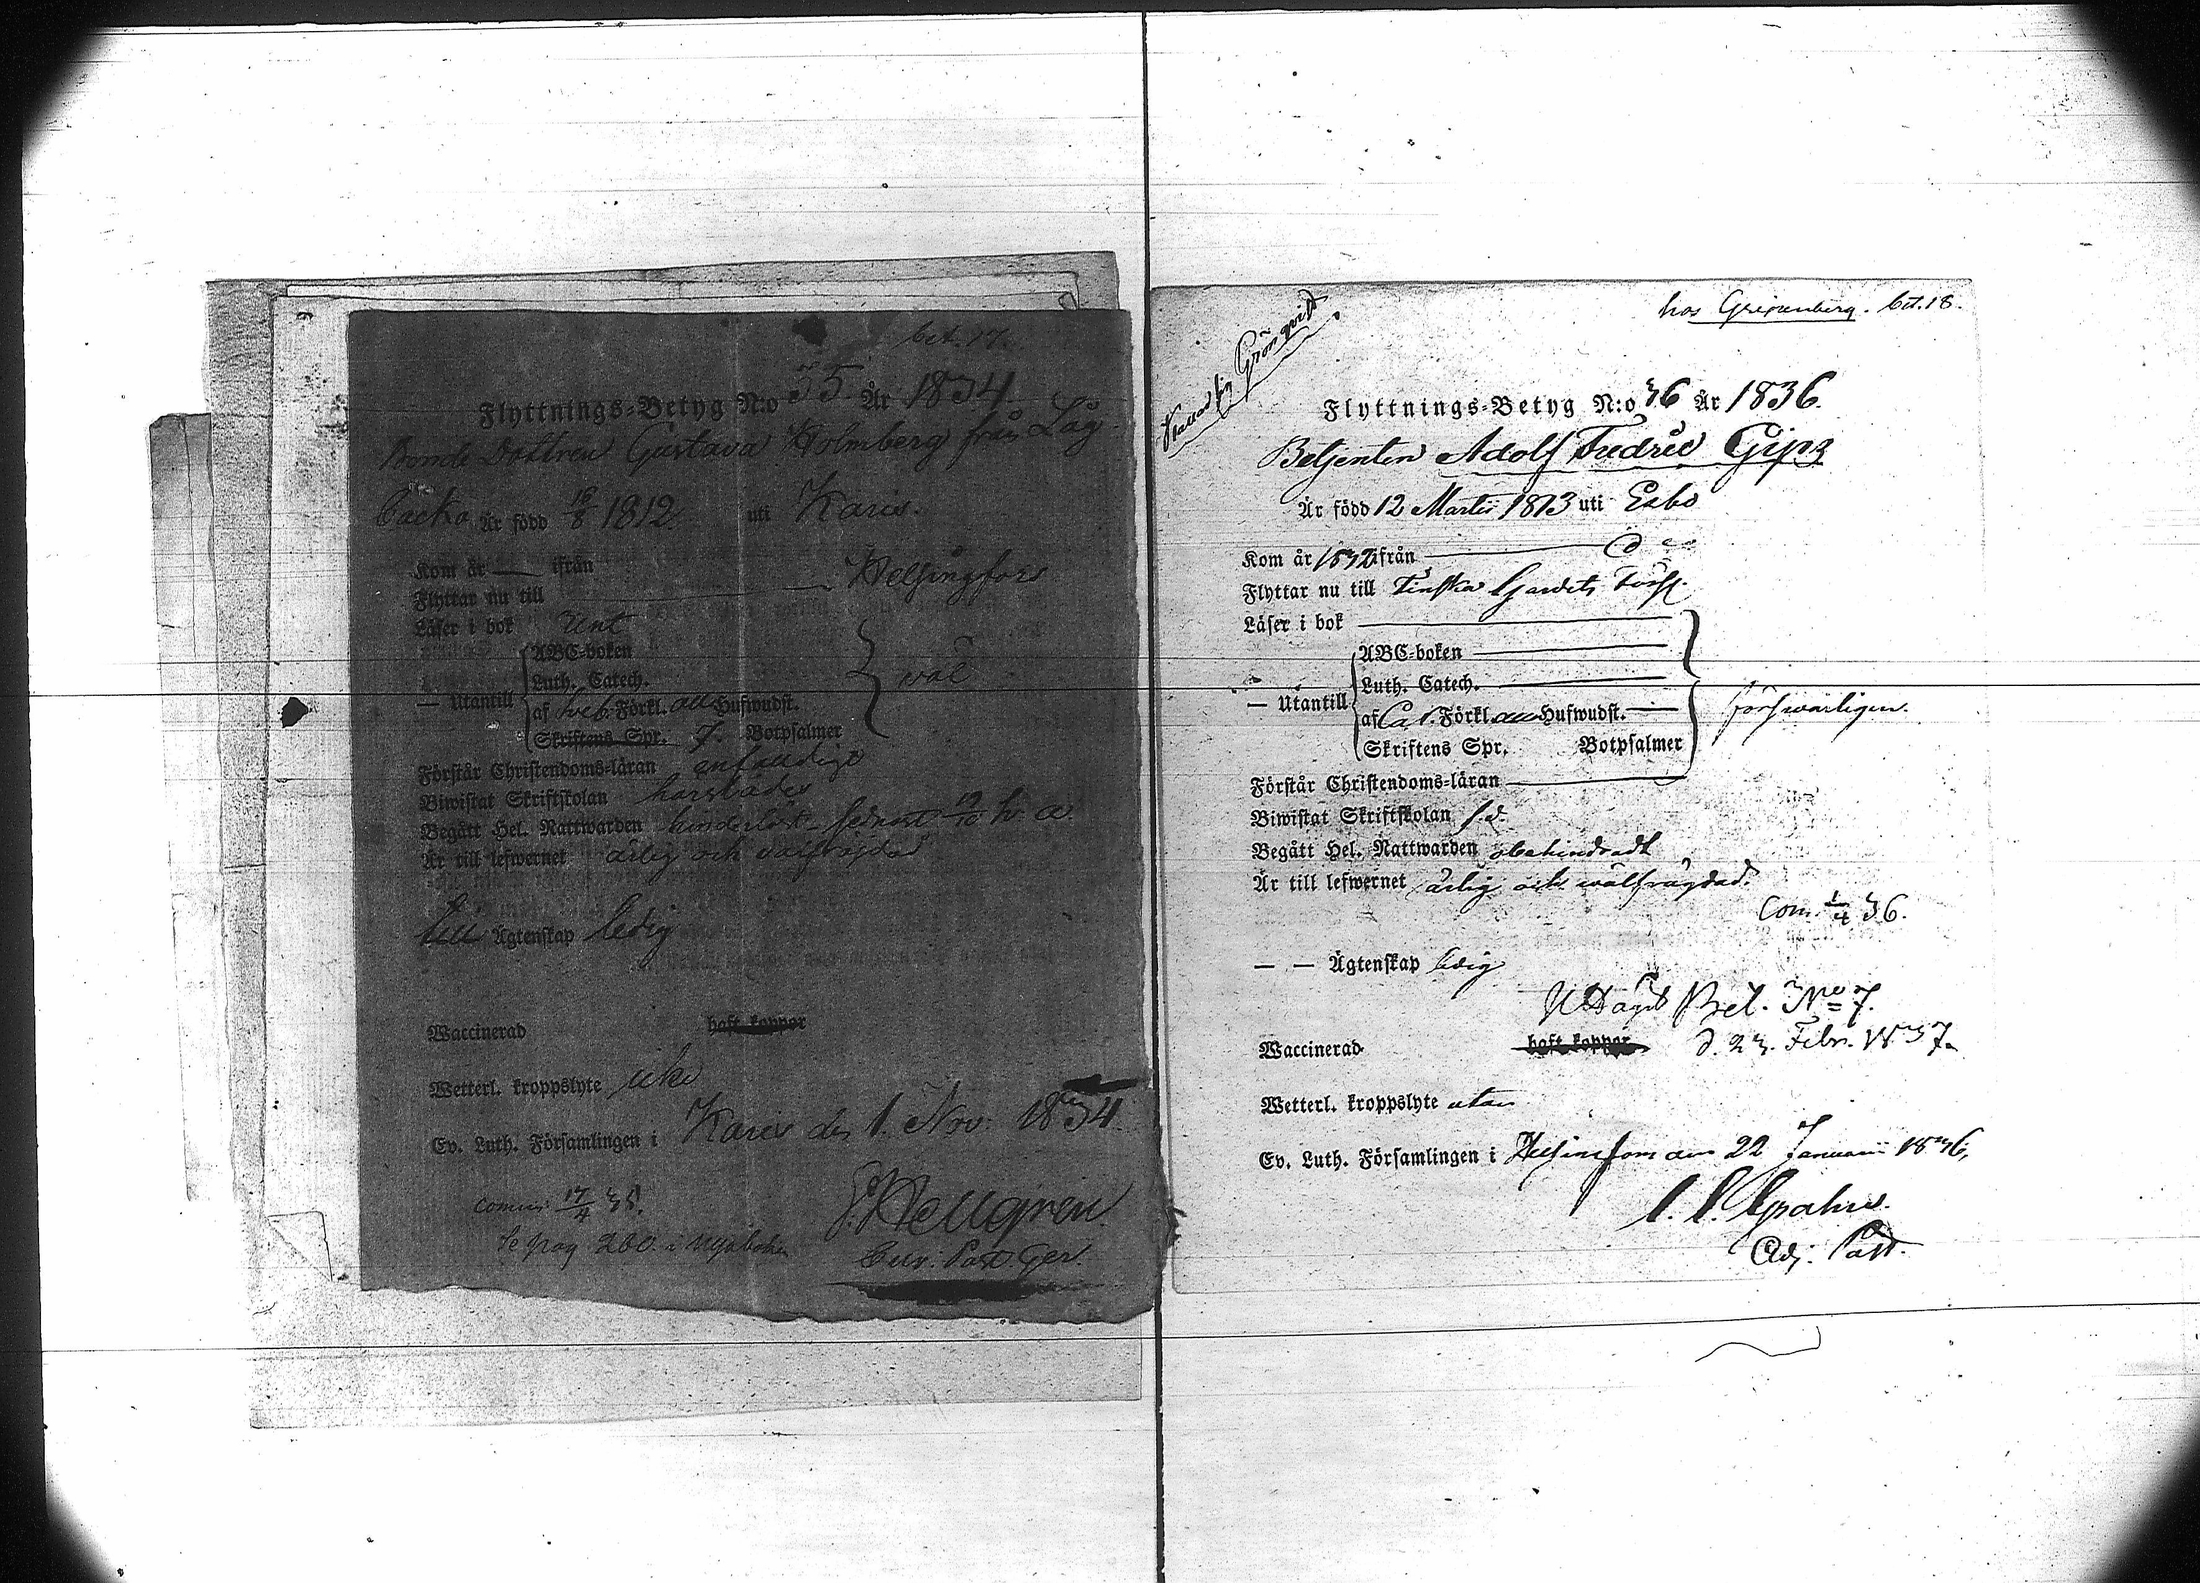 bet. 17.
Flyttnings-Betyg N:o 35 År 1834.
Bonde Dottren Gustava Holmberg från Låg-
backa Är född 18/8 1812 uti Karis.
Kom år — ifrån
Flyttar nu till — Helsingfors
Läser i bok
ABC-boken
Luth. Catech. wäl
— Utantill af Sveb. Förkl. all Hufwudst.
Skriftens Spr. 7. Botpsalmer
Förstår Christendoms-läran enfaldigt
Biwistat Skriftskolan
Begått Hel. Nattwarden senast 19/10 h. a.
Är till lefwernet ärlig och
till Ägtenskap ledig
Waccinerad haft koppor
Wetterl. kroppslyte icke
Ev. Luth. Församlingen i Karis den 1. Nov. 1834.
Hellgren
Past. Ger.
17/4 35.
Se pag 260. i Nya boken
hos Gripenberg. bet. 18.
Kallad sig Grönqvist.
Flyttnings-Betyg N:o 36 År 1836.
Betjenten Adolf Fredric Gipz
Är född 12 Martii 1813 uti Esbo
Kom år 1832 ifrån — d —
Flyttar nu till Finska Gardets Förs.
Läser i bok
ABC-boken
Luth. Catech.
— Utantill af Förkl. all Hufwudst. — försvarligen.
Skriftens Spr. Botpsalmer
Förstår Christendoms-läran
Biwistat Skriftskolan
Begått Hel. Nattwarden obehindradt
Är till lefwernet ärlig och wälfrägdad.
Com. 1/4 36.
— — Ägtenskap ledig
Uttagit Bet. No 7.
Waccinerad haft koppor d. 23. Febr. 1837.
Wetterl. kroppslyte utan
Ev. Luth. Församlingen i Helsingfors den 22 Januarii 1836,
Adj: Past.